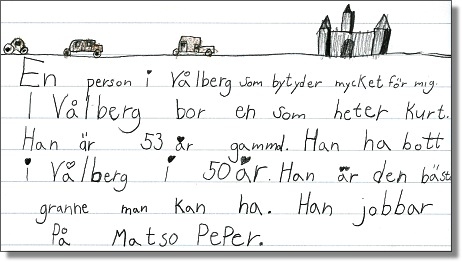 En person i Vålberg som bytyder mycket för mig.
I Vålberg bor en som heter Kurt.
Han är 53 år gammd. Han ha bott
i Vålberg i 50 år. Han är den bäst
granne man kan ha. Han jobbar
på Matso PePer.